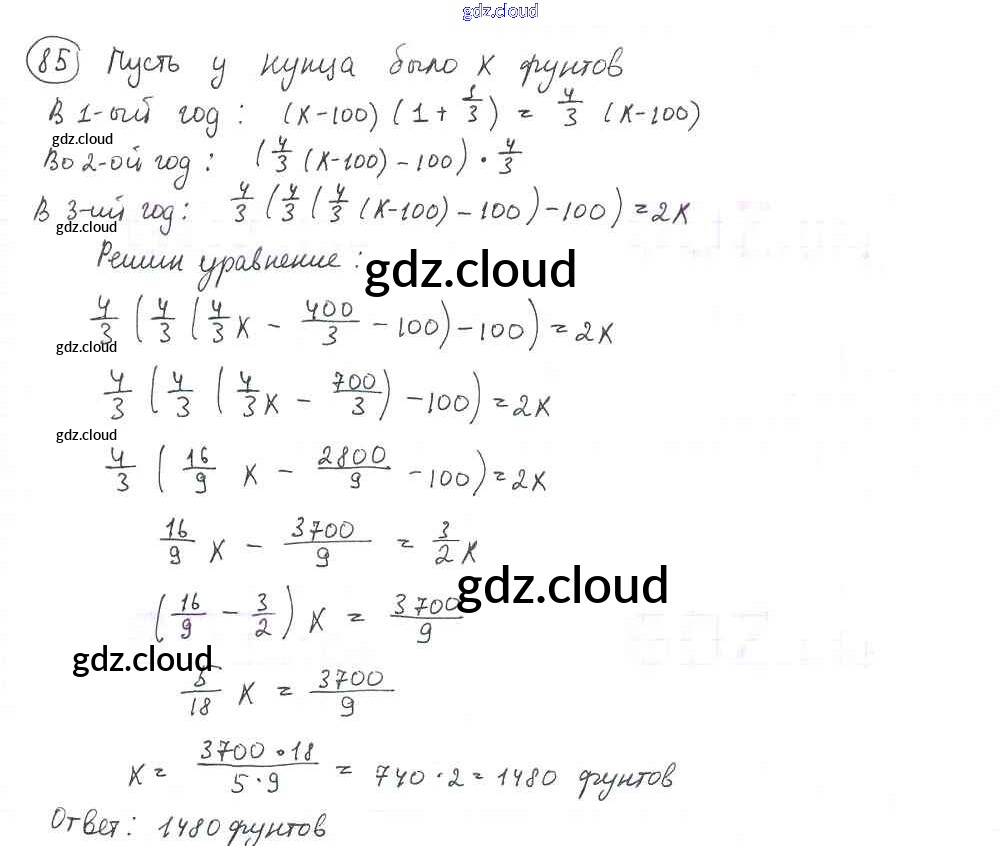 gdz.cloud
85 Пусть у купца было x фунтов
В 1-ый год: (x-100)(1+1/3) = 4/3 (x-100)
gdz.cloud
Во 2-ой год: (4/3 (x-100) - 100) · 4/3
В 3-ий год: 4/3 (4/3 (4/3 (x-100) - 100) - 100) = 2x
gdz.cloud
Решим уравнение:
gdz.cloud
4/3 (4/3 (4/3 x - 400/3 - 100) - 100) = 2x
gdz.cloud
4/3 (4/3 (4/3 x - 700/3) - 100) = 2x
gdz.cloud
4/3 (16/9 x - 2800/9 - 100) = 2x
16/9 x - 3700/9 = 3/2 x
gdz.cloud
(16/9 - 3/2) x = 3700/9
gdz.cloud
5/18 x = 3700/9
x = 3700·18/5·9 = 740·2 = 1480 фунтов
Ответ: 1480 фунтов